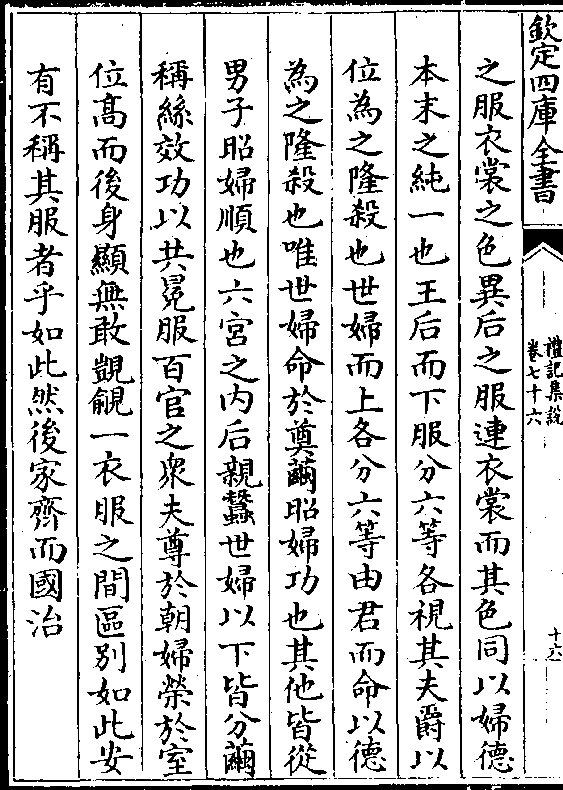 欽定四庫全書
禮記集說
卷七十六
十六
之服衣裳之色異后之服連衣裳而其色同以婦德
本末之純一也王后而下服分六等各視其夫爵以
位為之隆殺也世婦而上各分六等由君而命以德
為之隆殺也唯世婦命於奠繭昭婦功也其他皆從
男子昭婦順也六宮之内后親蠶世婦以下皆分繭
稱絲效功以共冕服百官之衆夫尊於朝婦榮於室
位高而後身顯無敢覬覦一衣服之間區别如此安
有不稱其服者乎如此然後家齊而國治